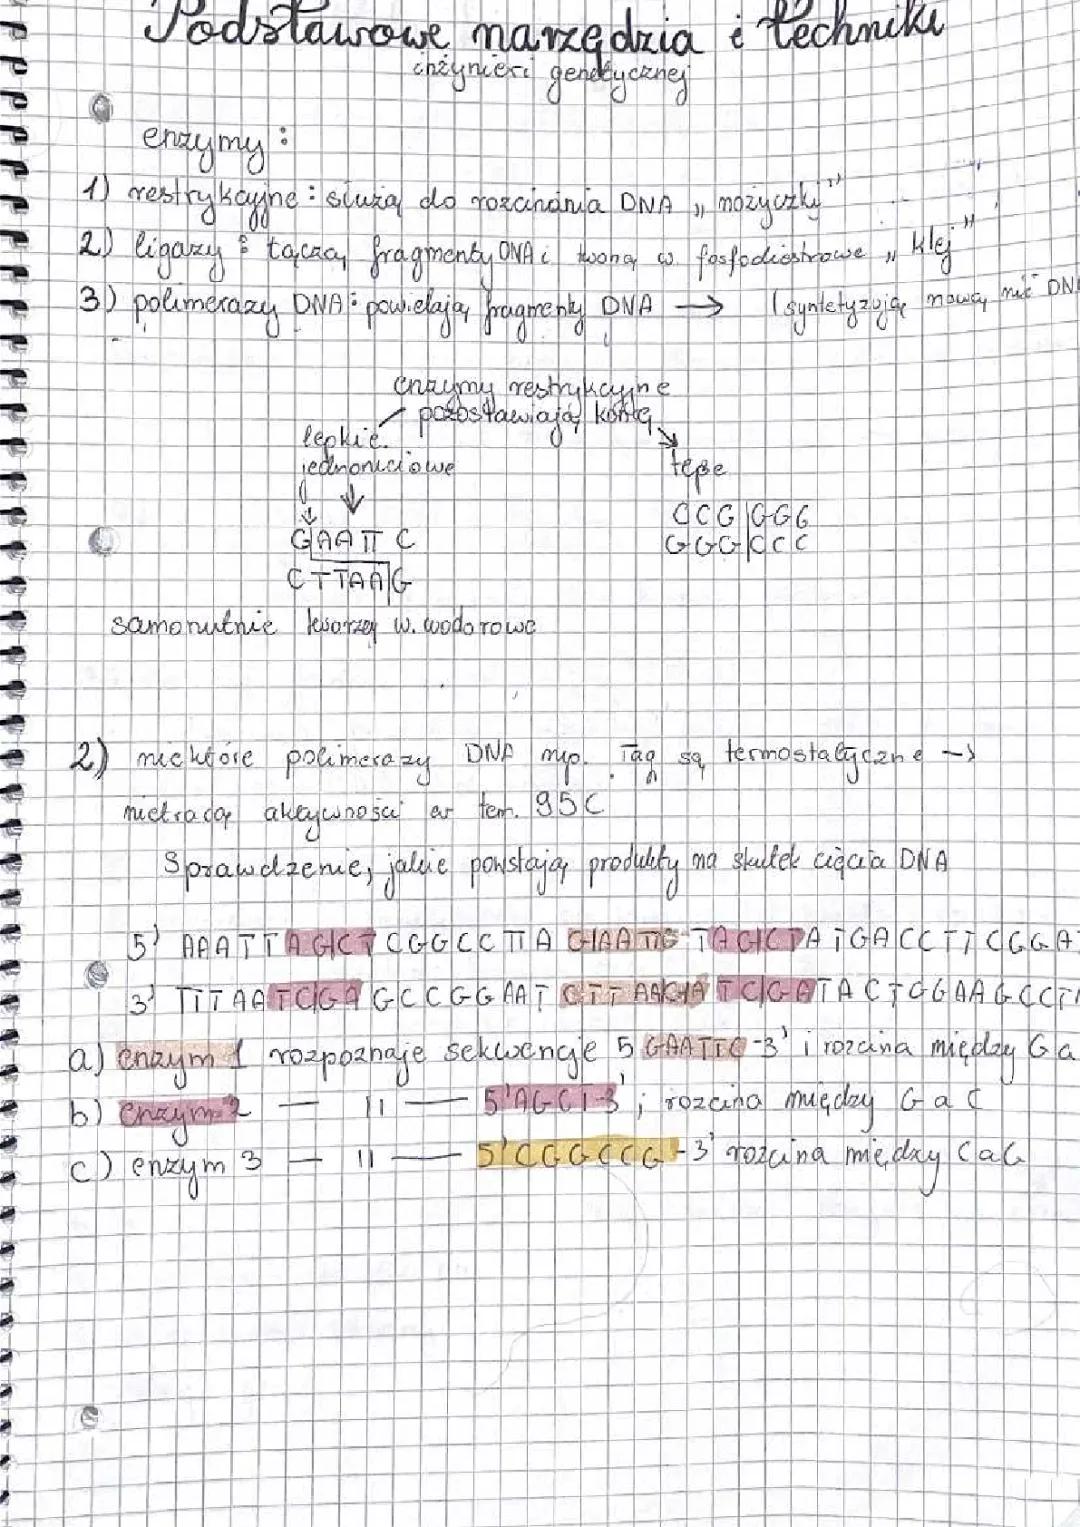 Podstawowe narzędzia i techniki
inżynieri genetycznej
enzymy:
1) restrykcyjne: służą do rozcinania DNA „nożyczki"
2) ligazy: łączą fragmenty DNA i tworzą w. fosfodiestrowe „klej"
3) polimerazy DNA: powielają fragmenty DNA → (syntetyzują nową nić DN
enzymy restrykcyjne
pozostawiają końce
lepkie
jednoniciowe
tępe
G|AATT C
CTTAA|G
CCG|GGG
GGG|CCC
samorzutnie tworzą w. wodorowe
2) niektóre polimerazy DNA np. Taq są termostatyczne →
nietracą aktywności w tem. 95C
Sprawdzenie, jakie powstają produkty na skutek cięcia DNA
5' AAATTAG|CTCGGCCTTAG|AATTCTAG|CTATGACCTTCGGA
3' TTTAATC|GAGCCGGAATCTTAAG|ATC|GATACTGGAAGCCT
a) enzym 1 rozpoznaje sekwencje 5 GAATTC-3' i rozcina między G a
b) enzym 2 — 11 — 5'AGCT-3'; rozcina między G a C
c) enzym 3 — 11 — 5'CGGCCG-3' rozcina między C a G